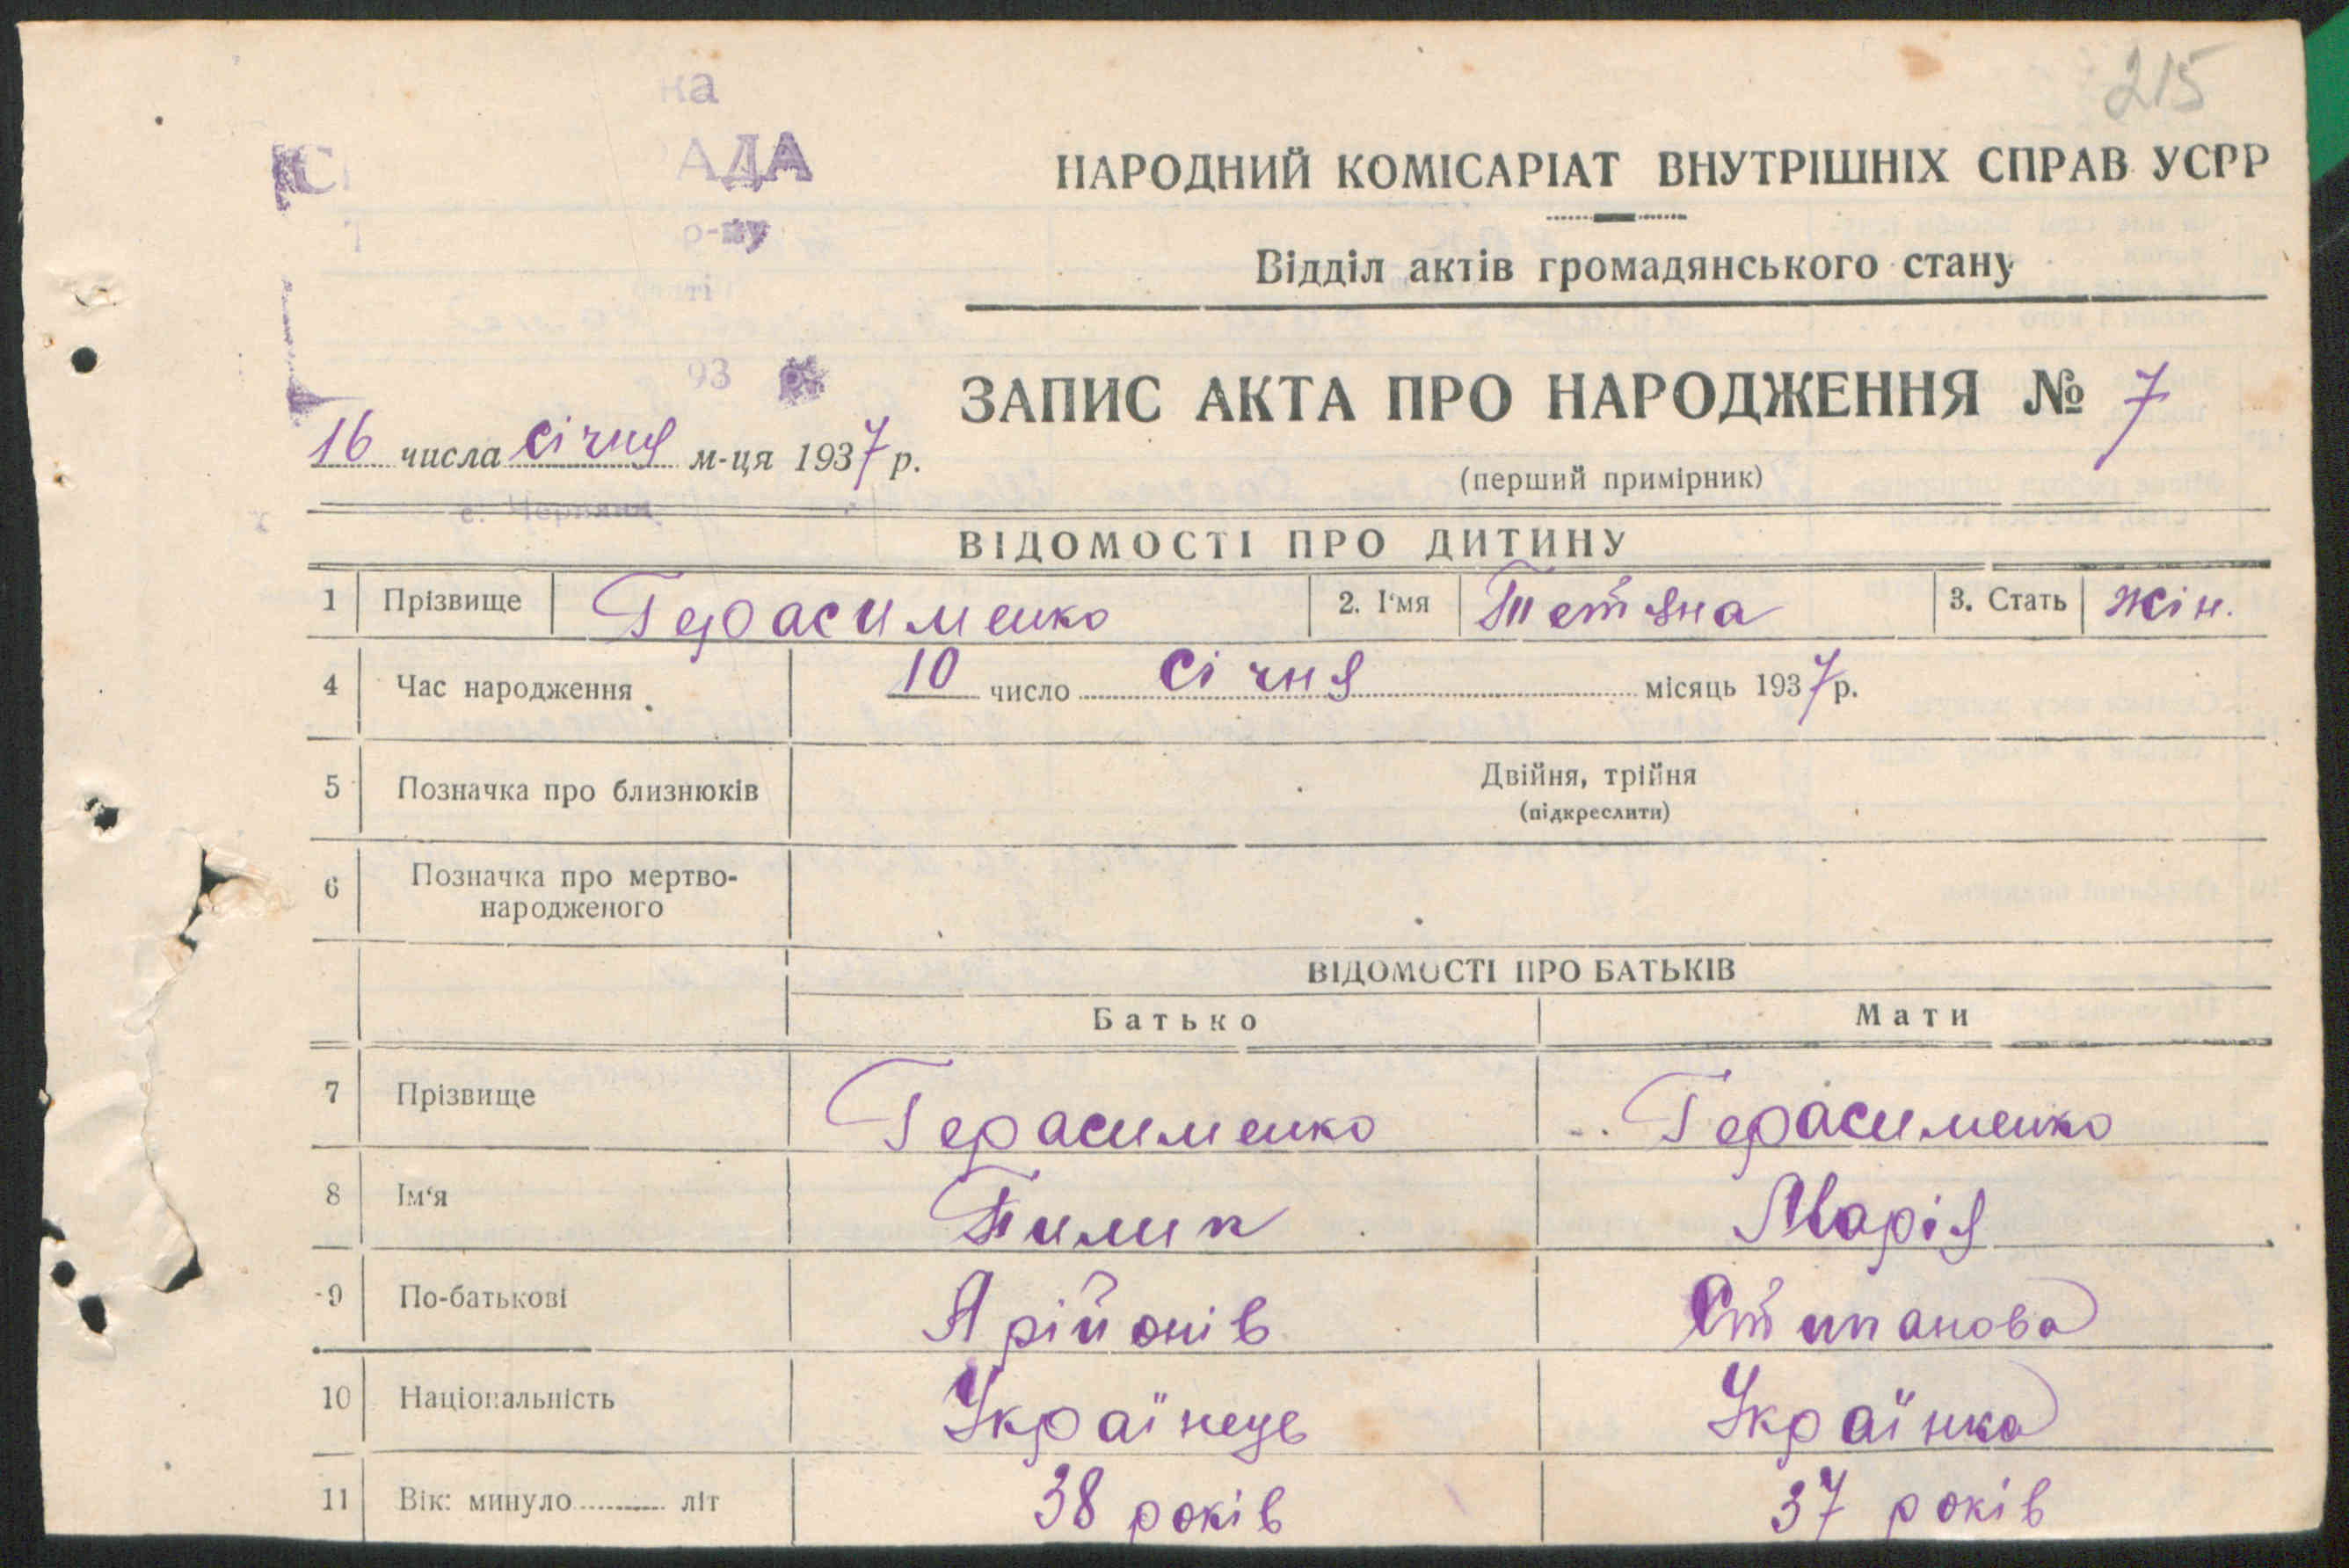 215
на
АДА
р-ну
93
НАРОДНИЙ КОМІСАРІАТ ВНУТРІШНІХ СПРАВ УСРР
Відділ актів громадянського стану
ЗАПИС АКТА ПРО НАРОДЖЕННЯ № 7
16 числа січня м-ця 1937 р.
(перший примірник)
ВІДОМОСТІ ПРО ДИТИНУ
1 Прізвище Герасименко 2. І'мя Тетяна 3. Стать жін.
4 Час народження 10 число січня місяць 1937 р.
5 Позначка про близнюків Двійня, трійня
(підкреслити)
6 Позначка про мертво-
народженого
ВІДОМОСТІ ПРО БАТЬКІВ
Батько Мати
7 Прізвище Герасименко Герасименко
8 Ім'я Тилип Марія
9 По-батькові Арійонів Стипанова
10 Національність Українець Українка
11 Вік: минуло літ 38 років 37 років